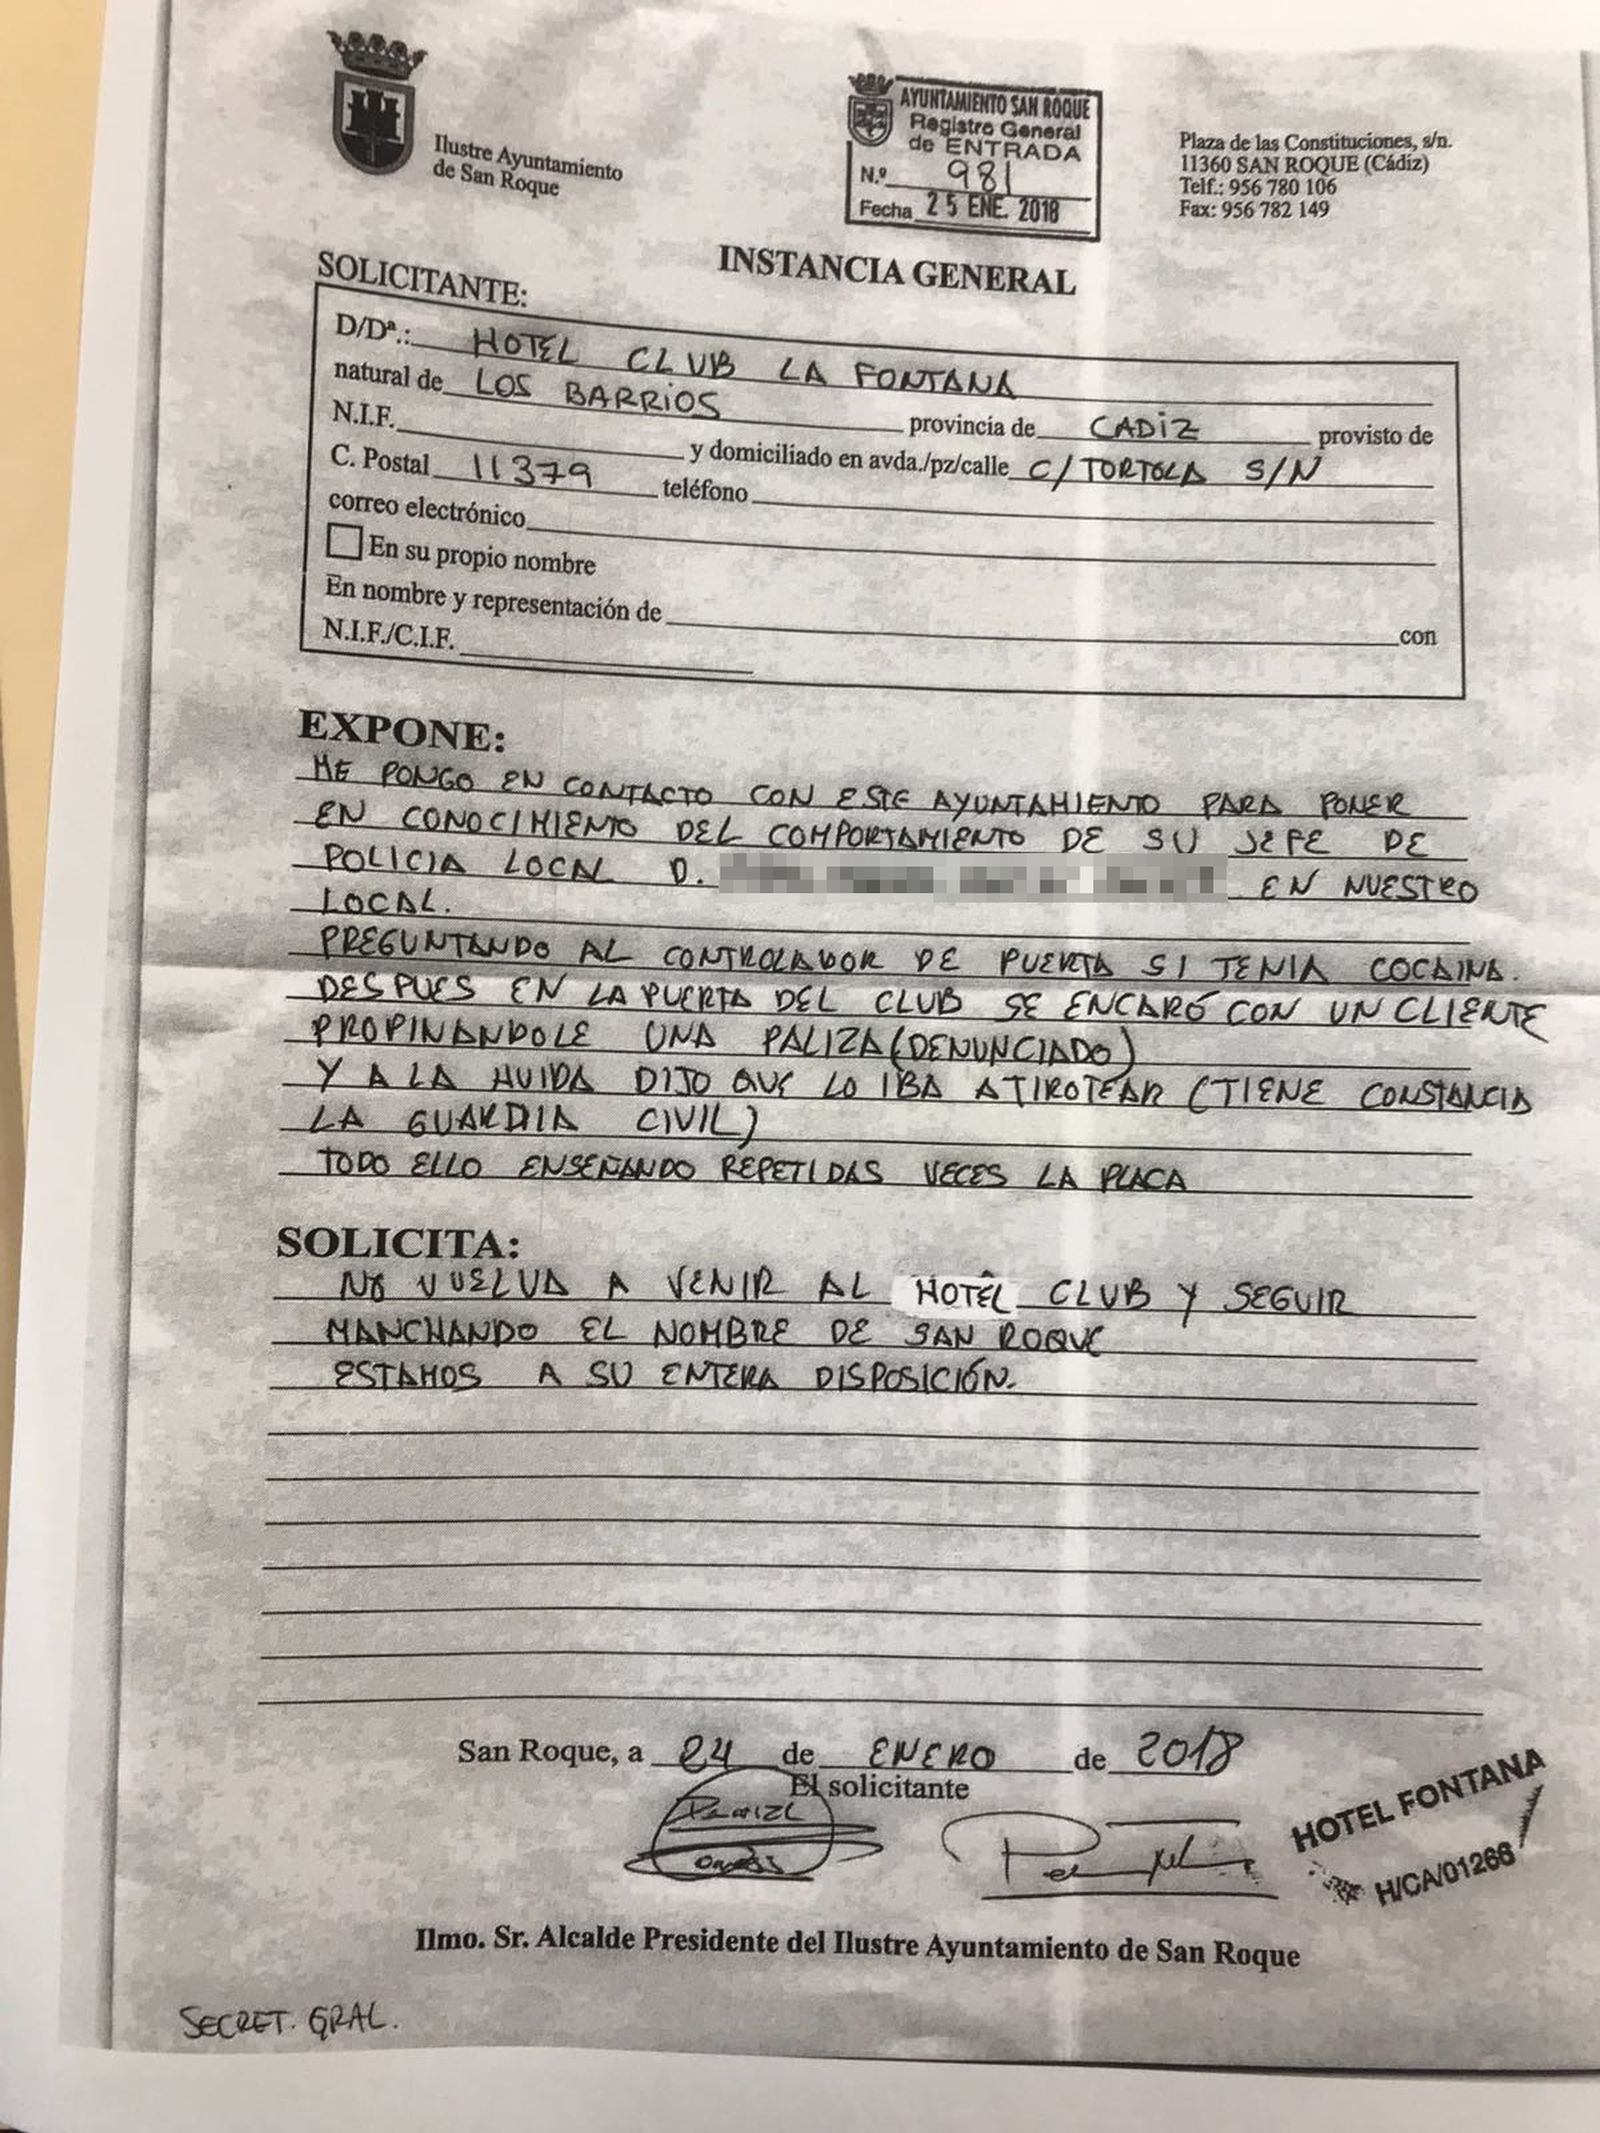 Ilustre Ayuntamiento
de San Roque
AYUNTAMIENTO SAN ROQUE
Registro General
de ENTRADA
N.º 981
Fecha 25 ENE. 2018
Plaza de las Constituciones, s/n.
11360 SAN ROQUE (Cádiz)
Telf.: 956 780 106
Fax: 956 782 149
INSTANCIA GENERAL
SOLICITANTE:
D/Dª.: HOTEL CLUB LA FONTANA
natural de LOS BARRIOS provincia de CADIZ provisto de
N.I.F. y domiciliado en avda./pz/calle C/ TORTOLA S/N
C. Postal 11379 teléfono
correo electrónico
En su propio nombre
En nombre y representación de con
N.I.F./C.I.F.
EXPONE:
ME PONGO EN CONTACTO CON ESTE AYUNTAMIENTO PARA PONER
EN CONOCIMIENTO DEL COMPORTAMIENTO DE SU JEFE DE
POLICIA LOCAL D. EN NUESTRO
LOCAL.
PREGUNTANDO AL CONTROLADOR DE PUERTA SI TENIA COCAINA.
DESPUES EN LA PUERTA DEL CLUB SE ENCARÓ CON UN CLIENTE
PROPINANDOLE UNA PALIZA (DENUNCIADO)
Y A LA HUIDA DIJO QUE LO IBA A TIROTEAR (TIENE CONSTANCIA
LA GUARDIA CIVIL)
TODO ELLO ENSEÑANDO REPETIDAS VECES LA PLACA
SOLICITA:
NO VUELVA A VENIR AL HOTEL CLUB Y SEGUIR
MANCHANDO EL NOMBRE DE SAN ROQUE
ESTAMOS A SU ENTERA DISPOSICIÓN.
San Roque, a 24 de ENERO de 2018
El solicitante
HOTEL FONTANA
H/CA/01266
Ilmo. Sr. Alcalde Presidente del Ilustre Ayuntamiento de San Roque
SECRET. GRAL.